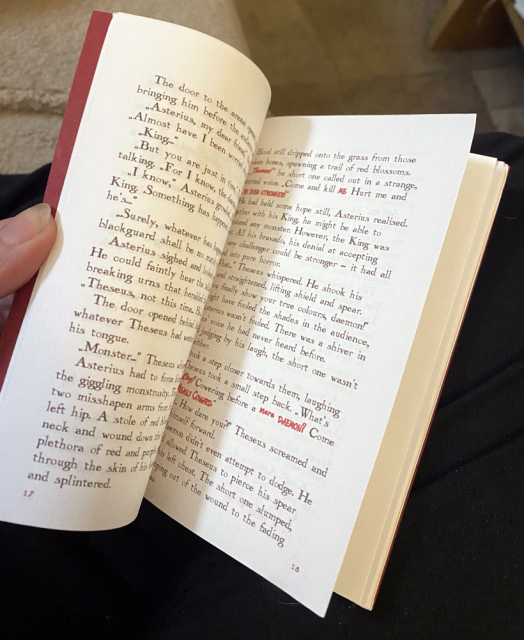 The door to the arena
bringing him before the
„Asterius, my dear friend
"Almost have I been worried
„King..."
„But you are just in time,
talking. „For I know, the
„I know," Asterius
King. „Something has
he's..."
„Surely, whatever has
blackguard shall be no
Asterius sighed and
He could faintly hear the
breaking urns that
„Theseus, not this time,
The door opened
whatever Theseus had
his tongue.
„Monster..." Theseus
Asterius had to
the giggling monstrosity,
two misshapen arms
left hip. A stole of red
neck and wound down
plethora of red and
through the skin of his
and splintered.
17
Blood still dripped onto the grass from those
bones, spawning a trail of red blossoms.
the short one called out in a strange,
voice. „Come and kill ME. Hurt me and
had held some hope still, Asterius realised.
with his King, he might be able to
any monster. However, the King was
All his bravado, his denial at accepting
challenger could be stronger – it had all
into pure horror.
Theseus whispered. He shook his
straightened, lifting shield and spear.
finally show your true colours, daemon!"
have fooled the shades in the audience,
wasn't fooled. There was a shiver in
voice he had never heard before.
judging by his laugh, the short one wasn't
either.
took a step closer towards them, laughing.
Theseus took a small step back. „What's
Cowering before a mere DAEMON? Come
COWARD"
How dare you?" Theseus screamed and
himself forward.
didn't even attempt to dodge. He
allowed Theseus to pierce his spear
his left chest. The short one slumped,
out of the wound to the fading
18